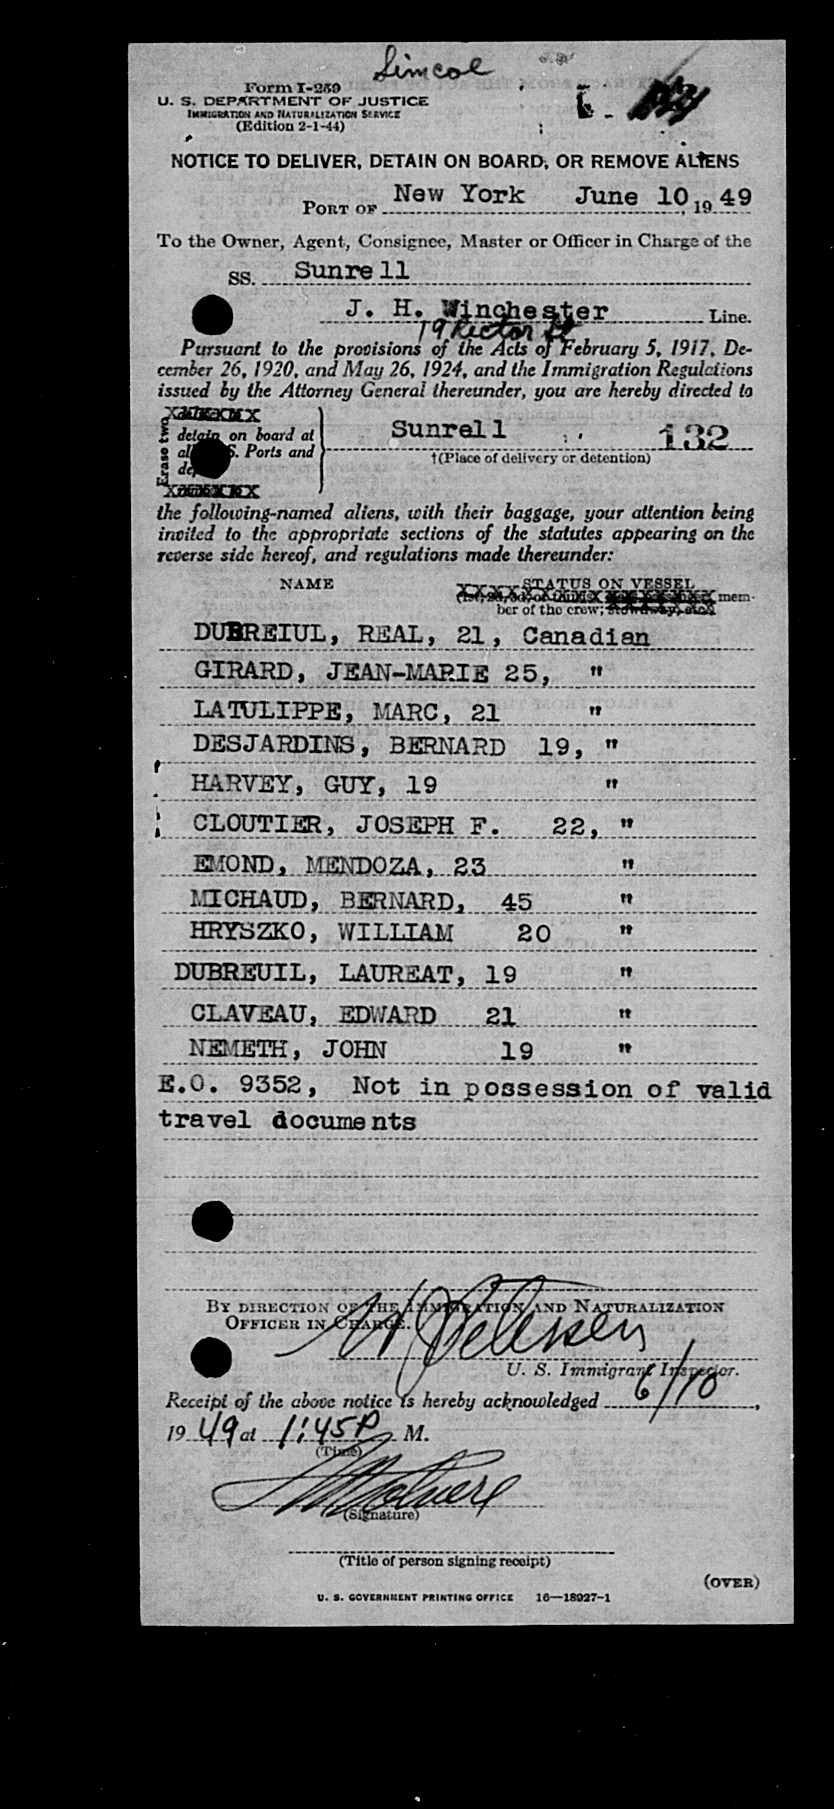 Simcoe
Form I-259
U. S. DEPARTMENT OF JUSTICE
IMMIGRATION AND NATURALIZATION SERVICE
(Edition 2-1-44)
NOTICE TO DELIVER, DETAIN ON BOARD, OR REMOVE ALIENS
PORT OF New York June 10, 1949
To the Owner, Agent, Consignee, Master or Officer in Charge of the
SS. Sunrell
J. H. Winchester Line.
19 Rector St
Pursuant to the provisions of the Acts of February 5, 1917, De-
cember 26, 1920, and May 26, 1924, and the Immigration Regulations
issued by the Attorney General thereunder, you are hereby directed to
Erase two
detain on board at
S. Ports and
Sunrell 132
†(Place of delivery or detention)
the following-named aliens, with their baggage, your attention being
invited to the appropriate sections of the statutes appearing on the
reverse side hereof, and regulations made thereunder:
NAME STATUS ON VESSEL
mem-
ber of the crew;
DUBREIUL, REAL, 21, Canadian
GIRARD, JEAN-MARIE 25, "
LATULIPPE, MARC, 21 "
DESJARDINS, BERNARD 19, "
HARVEY, GUY, 19 "
CLOUTIER, JOSEPH F. 22, "
EMOND, MENDOZA, 23 "
MICHAUD, BERNARD, 45 "
HRYSZKO, WILLIAM 20 "
DUBREUIL, LAUREAT, 19 "
CLAVEAU, EDWARD 21 "
NEMETH, JOHN 19 "
E.O. 9352, Not in possession of valid
travel documents
BY DIRECTION OF THE IMMIGRATION AND NATURALIZATION
OFFICER IN CHARGE.
U. S. Immigrant Inspector.
Receipt of the above notice is hereby acknowledged 6/10,
1949 at 1:45 P M.
(Time)
(Signature)
(Title of person signing receipt)
(OVER)
U. S. GOVERNMENT PRINTING OFFICE 16—18927-1